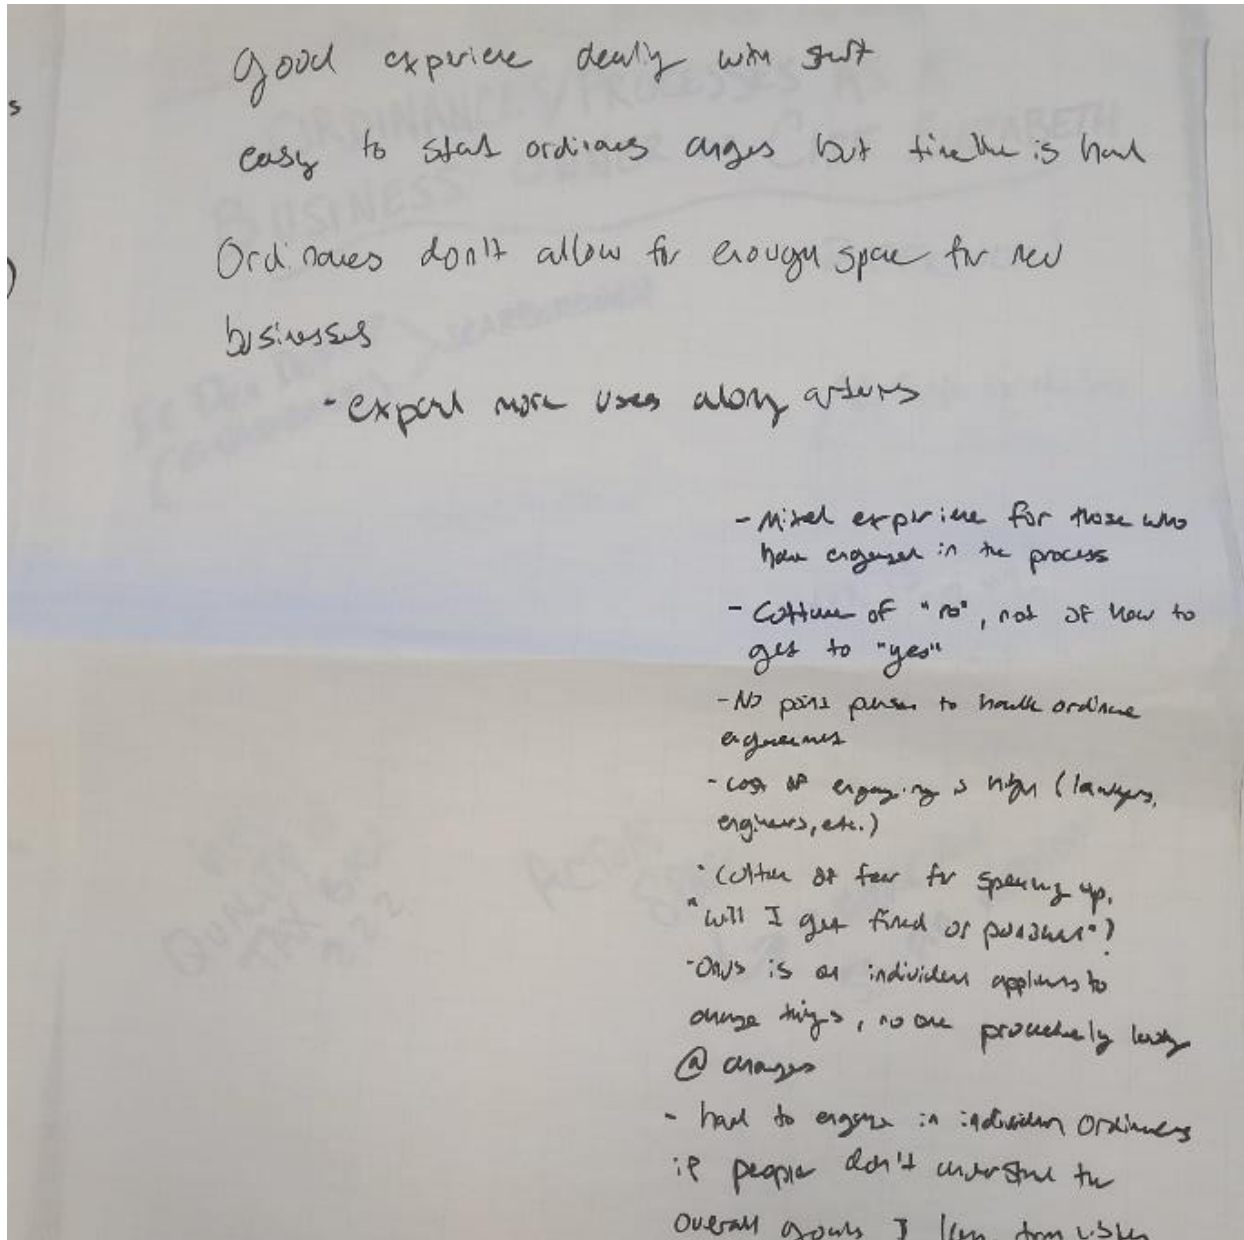 Good experience dealing with staff
easy to start ordinances changes but timeline is hard
Ordinances don't allow for enough space for new
businesses
- expand more uses along arteries
- Mixed experience for those who
have engaged in the process
- Culture of "no", not of how to
get to "yes"
- No point person to handle ordinance
- cost of engaging is high (lawyers,
engineers, etc.)
- Culture of fear for speaking up,
"will I get fined or punished"?
- Onus is on individual applicants to
change things, no one proactively looking
@ changes
- hard to engage in individual ordinances
if people don't understand the
overall goals
s
)
ORDINANCES/PROCESSES AS
BUSINESS CAPE ELIZABETH
SCARBOROUGH